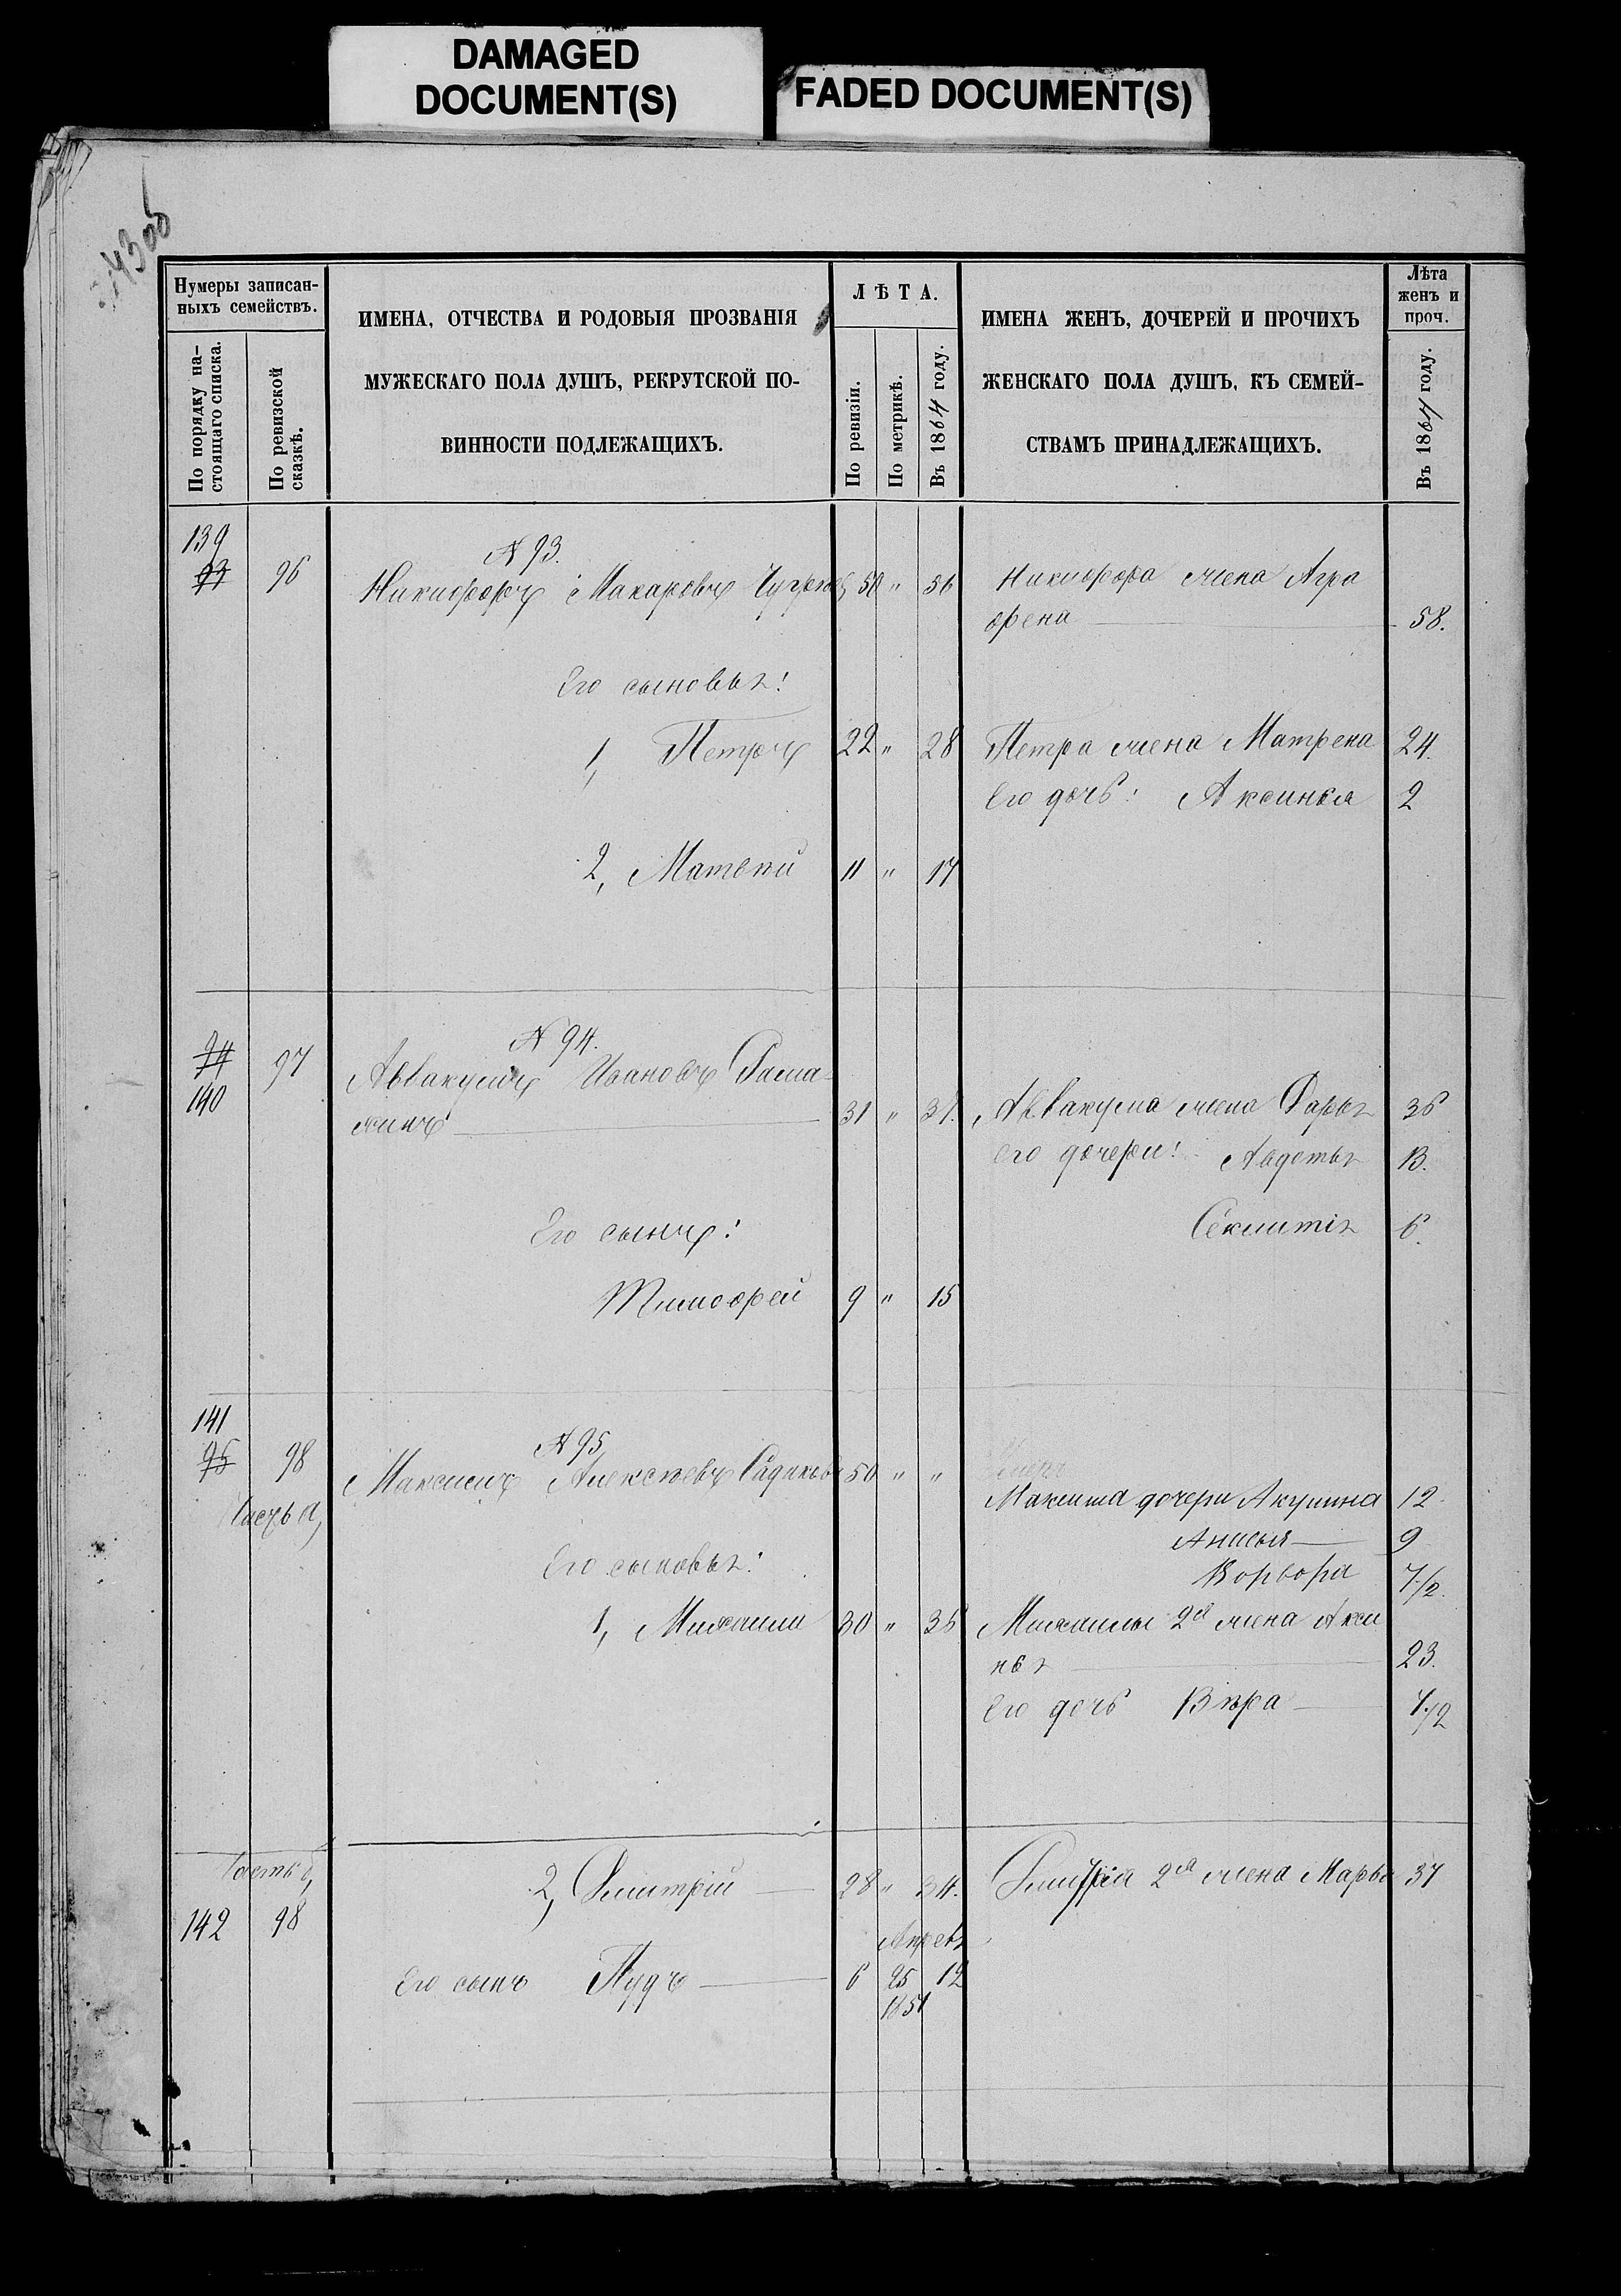 DAMAGED
DOCUMENT(S)
FADED DOCUMENT(S)
Нумеры записан-
ныхъ семействъ.
По порядку на-
стоящаго списка.
По ревизской
сказкѣ.
ИМЕНА, ОТЧЕСТВА И РОДОВЫЯ ПРОЗВАНІЯ
МУЖЕСКАГО ПОЛА ДУШЪ, РЕКРУТСКОЙ ПО-
ВИННОСТИ ПОДЛЕЖАЩИХЪ.
ЛѢТА.
По ревизіи.
По метрикѣ.
Въ 1864 году.
ИМЕНА ЖЕНЪ, ДОЧЕРЕЙ И ПРОЧИХЪ
ЖЕНСКАГО ПОЛА ДУШЪ, КЪ СЕМЕЙ-
СТВАМЪ ПРИНАДЛЕЖАЩИХЪ.
Лѣта
женъ и
проч.
Въ 1864 году.
139
N 93.
93 96 Никифоръ Макаровъ 50 " 56 Никифора жена Агра
фена 58.
Его сыновья:
1, Петръ 22 " 28 Петра жена Матрена 24.
Его дочь: Аксинья 2
2, Матвѣй 11 " 17
N 94.
94 97 Аввакумъ Ивановъ
140 31 " 37. Аввакума жена Дарья 36
его дочери: Авдотья 13.
Его сынъ: 6.
Тимофей 9 " 15
141
N 95
95 98 Максимъ Алексѣевъ 50 " "
Часть а, Максима дочери Акулина 12.
Анисья 9
Его сыновья: Ворвора 7/2.
1, Михаила 30 " 36 Михаилы 2я жена Акси
нья 23.
Его дочь Вѣра 1/2
Часть б, 2, Дмитрій 28 " 34. Дмитрія 2я жена Марья 37
142 98
Апрѣля
Его сынъ Пудъ 6 25 12
1851